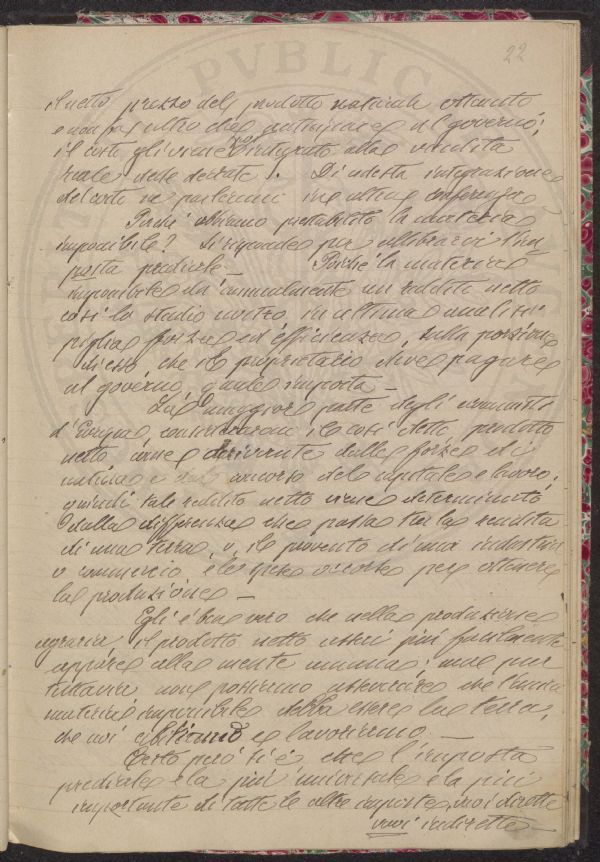 22
il netto prezzo del prodotto naturale ottenuto
e non fa altro che anticipare al governo;
il costo gli viene poi integrato alla vendita
reale delle derrate. Di codesta integrazione
del costo ne parleremo in altra conferenza
Perché abbiamo prestabilito la materia
imponibile? Si risponde per illustrarvi l'im
posta prediale — Poiché la materia
imponibile dà annualmente un reddito netto
così lo studio nostro in ultima analisi
piglia forza ed efficienza, sulla porzione
di esso che il proprietario deve pagare
al governo, quale imposta —
La maggior parte degli economisti
d'Europa considerarono il così detto prodotto
netto come derivante dalle forze di
natura e dal concorso del capitale e lavoro;
quindi tale reddito netto viene determinato
dalla differenza che passa tra la rendita
di una terra, o il provento di una industria
o commercio, e le spese occorse per ottenere
la produzione —
Egli è ben vero che nella produzione
agraria il prodotto netto esser più facilmente
appare alla mente umana; ma pur
tuttavia non possiamo asserire che l'unica
materia imponibile debba essere la terra,
che noi abitiamo e lavoriamo —
Certo però si è che l'imposta
prediale è la più universale e la più
importante di tutte le altre imposte, vuoi dirette
vuoi indirette —
PVBLIC